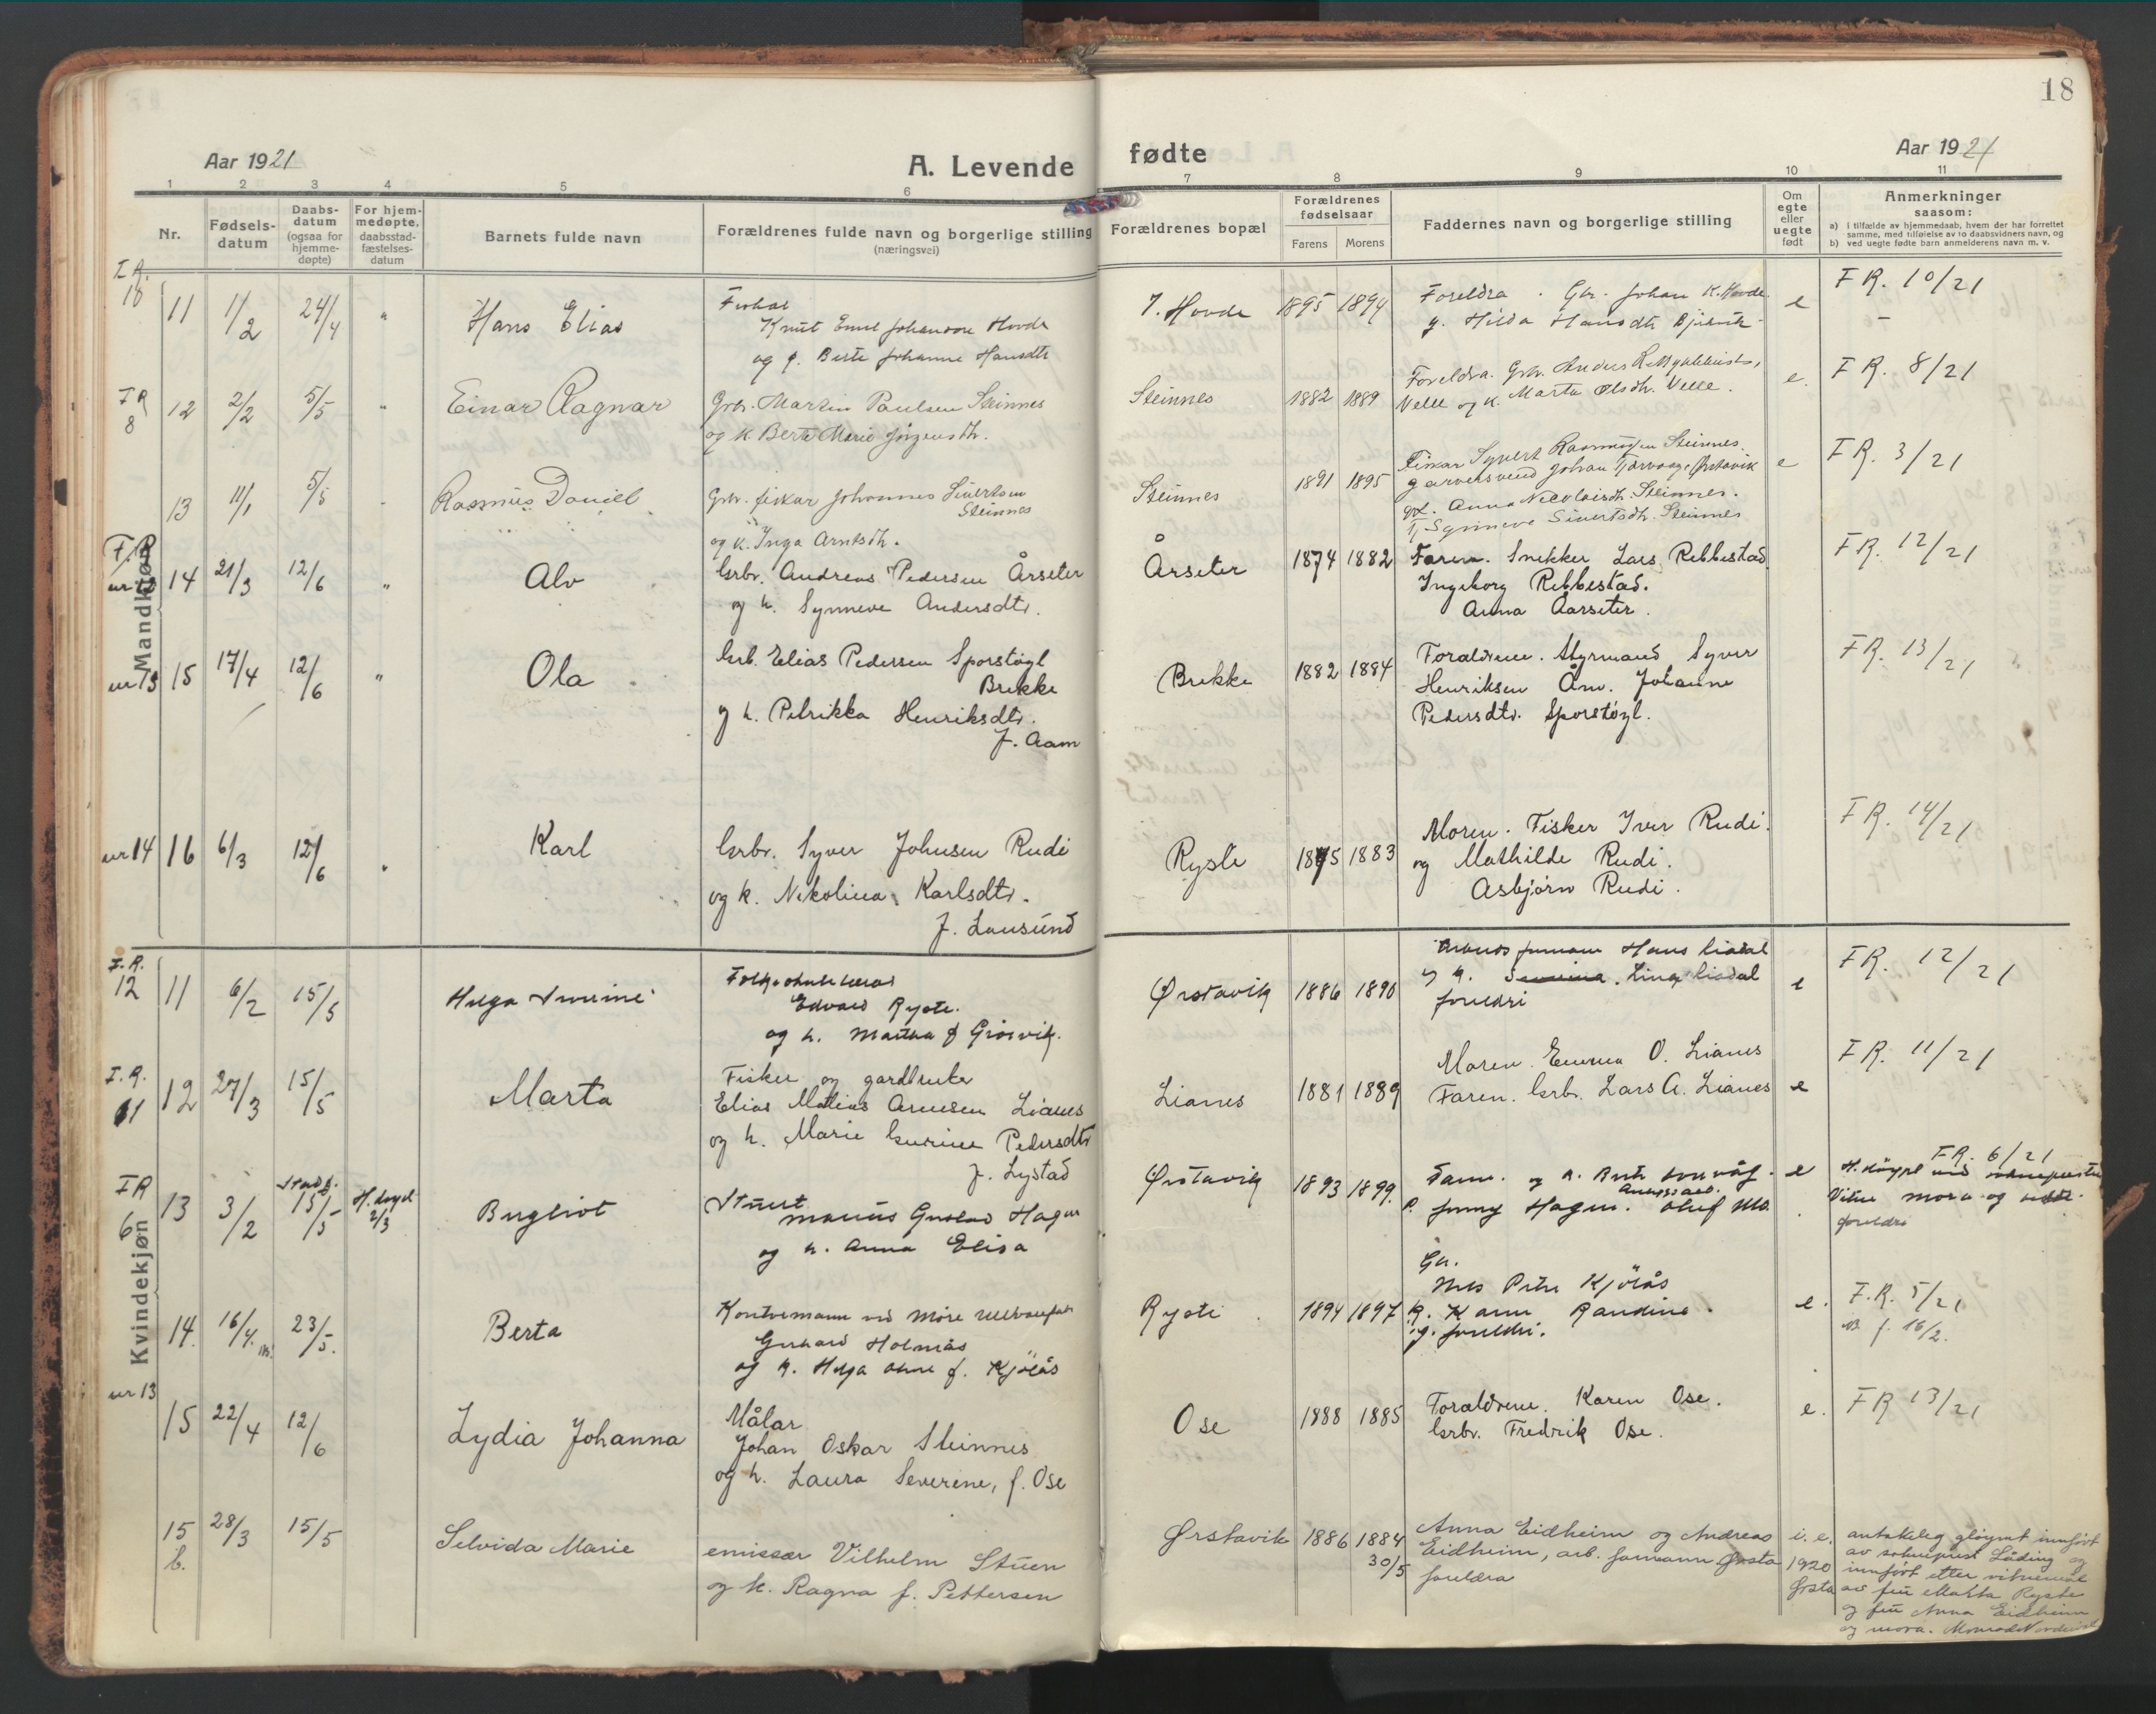 18
Aar 1921
A. Levende fødte
Aar 1921
1 2 3 4 5 6 7 8 9 10 11
Nr.
Fødsels-
datum
Daabs-
datum
(ogsaa for
hjemme-
døpte)
For hjem-
medøpte,
daabsstad-
fæstelses-
datum
Barnets fulde navn
Forældrenes fulde navn og borgerlige stilling
(næringsvei)
Forældrenes bopæl
Forældrenes
fødselsaar
Farens Morens
Faddernes navn og borgerlige stilling
Om
egte
eller
uegte
født
Anmerkninger
saasom:
a) i tilfælde av hjemmedaab, hvem der har forrettet
samme, med tilføielse av to daabsvidners navn, og
b) ved uegte fødte barn anmelderens navn m. v.
Mandkjøn
F.R.
10
11 11/2 24/4 " Hans Elias
Knut Emil Johansen Hovde
og k. Berte Johanne Hansdtr
Y. Hovde 1895 1894
Foreldra . Gbr. Johan K. Hovde.
g. Hilda Hansdtr
e
FR. 10/21
FR
8
12 2/2 5/5 " Einar Ragnar
Grbr. Martin Paulsen Steinnes
og k Berte Marie Jörgensdtr.
Steinnes 1882 1889
Foreldra. Grbr. Anders
Velle og k. Marta Olsdtr. Velle.
e.
FR. 8/21
13 11/1 5/5 Rasmus Daniel
Grbr. fiskar Johannes Sivertsen
Steinnes
og k. Inga Arntsdtr.
Steinnes 1891 1895
Fiskar Syvert Rasmussen Steinnes
garversvend Johan Ørstavik
Anna Nicolaisdtr. Steinnes.
Synneve Sivertsdtr. Steinnes
e
FR. 3/21
F.R.
nr 12
14 21/3 12/6 " Alv
Grbr. Andreas Pedersen Årseter
og h. Synneve Andersdtr.
Årseter 1874 1882
Faren. Snekker Lars Rebbestad
Ingeborg Rebbestad.
Anna Aarseter.
FR. 12/21
nr 13
15 17/4 12/6 " Ola
Grb. Elias Pedersen Sporstøyl
Brekke
og h. Petrikka Henriksdtr.
f. Aam
Brekke 1882 1884
Foraldrene. Styrmand Syver
Henriksen Åm. Johanne
Pedersdtr. Sporstøyl.
FR. 13/21
nr 14
16 6/3 12/6 " Karl
Grbr. Syver Johnsen Rudi
og k. Nikolina Karlsdtr.
f. Lausund
Ryste 1875 1883
Moren. Fisker Iver Rudi.
og Mathilde Rudi.
Asbjørn Rudi.
FR. 14/21
Kvindekjøn
F.R.
12
11 6/2 15/5 Helga
Edvard Ryste.
og h. Martha f Grøvik.
Ørstavik 1886 1890
Hans Liadal
Lina Liadal
foreldri
e
FR. 12/21
F.R.
11
12 27/3 15/5 Marta
Fisker og gardbruker
Elias Matias Arnesen Lianes
og h. Marie Gurine Pedersdtr
f. Lystad
Lianes 1881 1889
Moren. Emma O. Lianes
Faren. Grbr. Lars A. Lianes
e
FR. 11/21
FR
6
13 3/2 15/5 2/3 Bergliot
Marius Gustav Hagen
og h. Anna Elisa
Ørstavik 1893 1899.
Jenny Hagen. Oluf Mo.
e
FR. 6/21
Vitne mora og
foreldre
14. 16/4. 23/5. Berta
Gerhard Holmås
og k. Helga f. Kjölås
Ryste 1894 1897
Gbr.
Nils Peter Kjölås
K. Karen Randine.
og foreldri.
e.
F.R. 5/21
f. 16/2.
nr 13
15 22/4 12/6 Lydia Johanna
Målar
Johan Oskar Steinnes
og h. Laura Severine, f. Ose
Ose 1888 1885
Foraldrene. Karen Ose.
Grbr. Fredrik Ose.
e.
FR 13/21
15
b.
28/3 15/5 Selvida Marie
emissær Vilhelm Stuen
og k. Ragna f. Pettersen
Ørstavik 1886 1884
30/5
Anna Eidheim og Andreas
Eidheim, arb. formann Ørsta
foreldra
i. e.
1920
Ørsta
antakeleg gløymt innført
av sokneprest Låding og
innført etter vitnemål
av fru Marta Ryste
og fru Anna Eidheim
og mora.